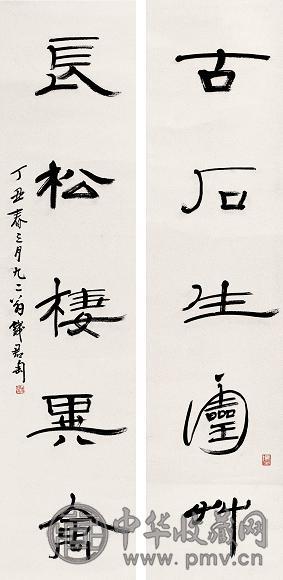 古石生靈艸
長松棲異禽
丁丑春三月九二翁錢君匋
中华收藏网
www.pmv.cn